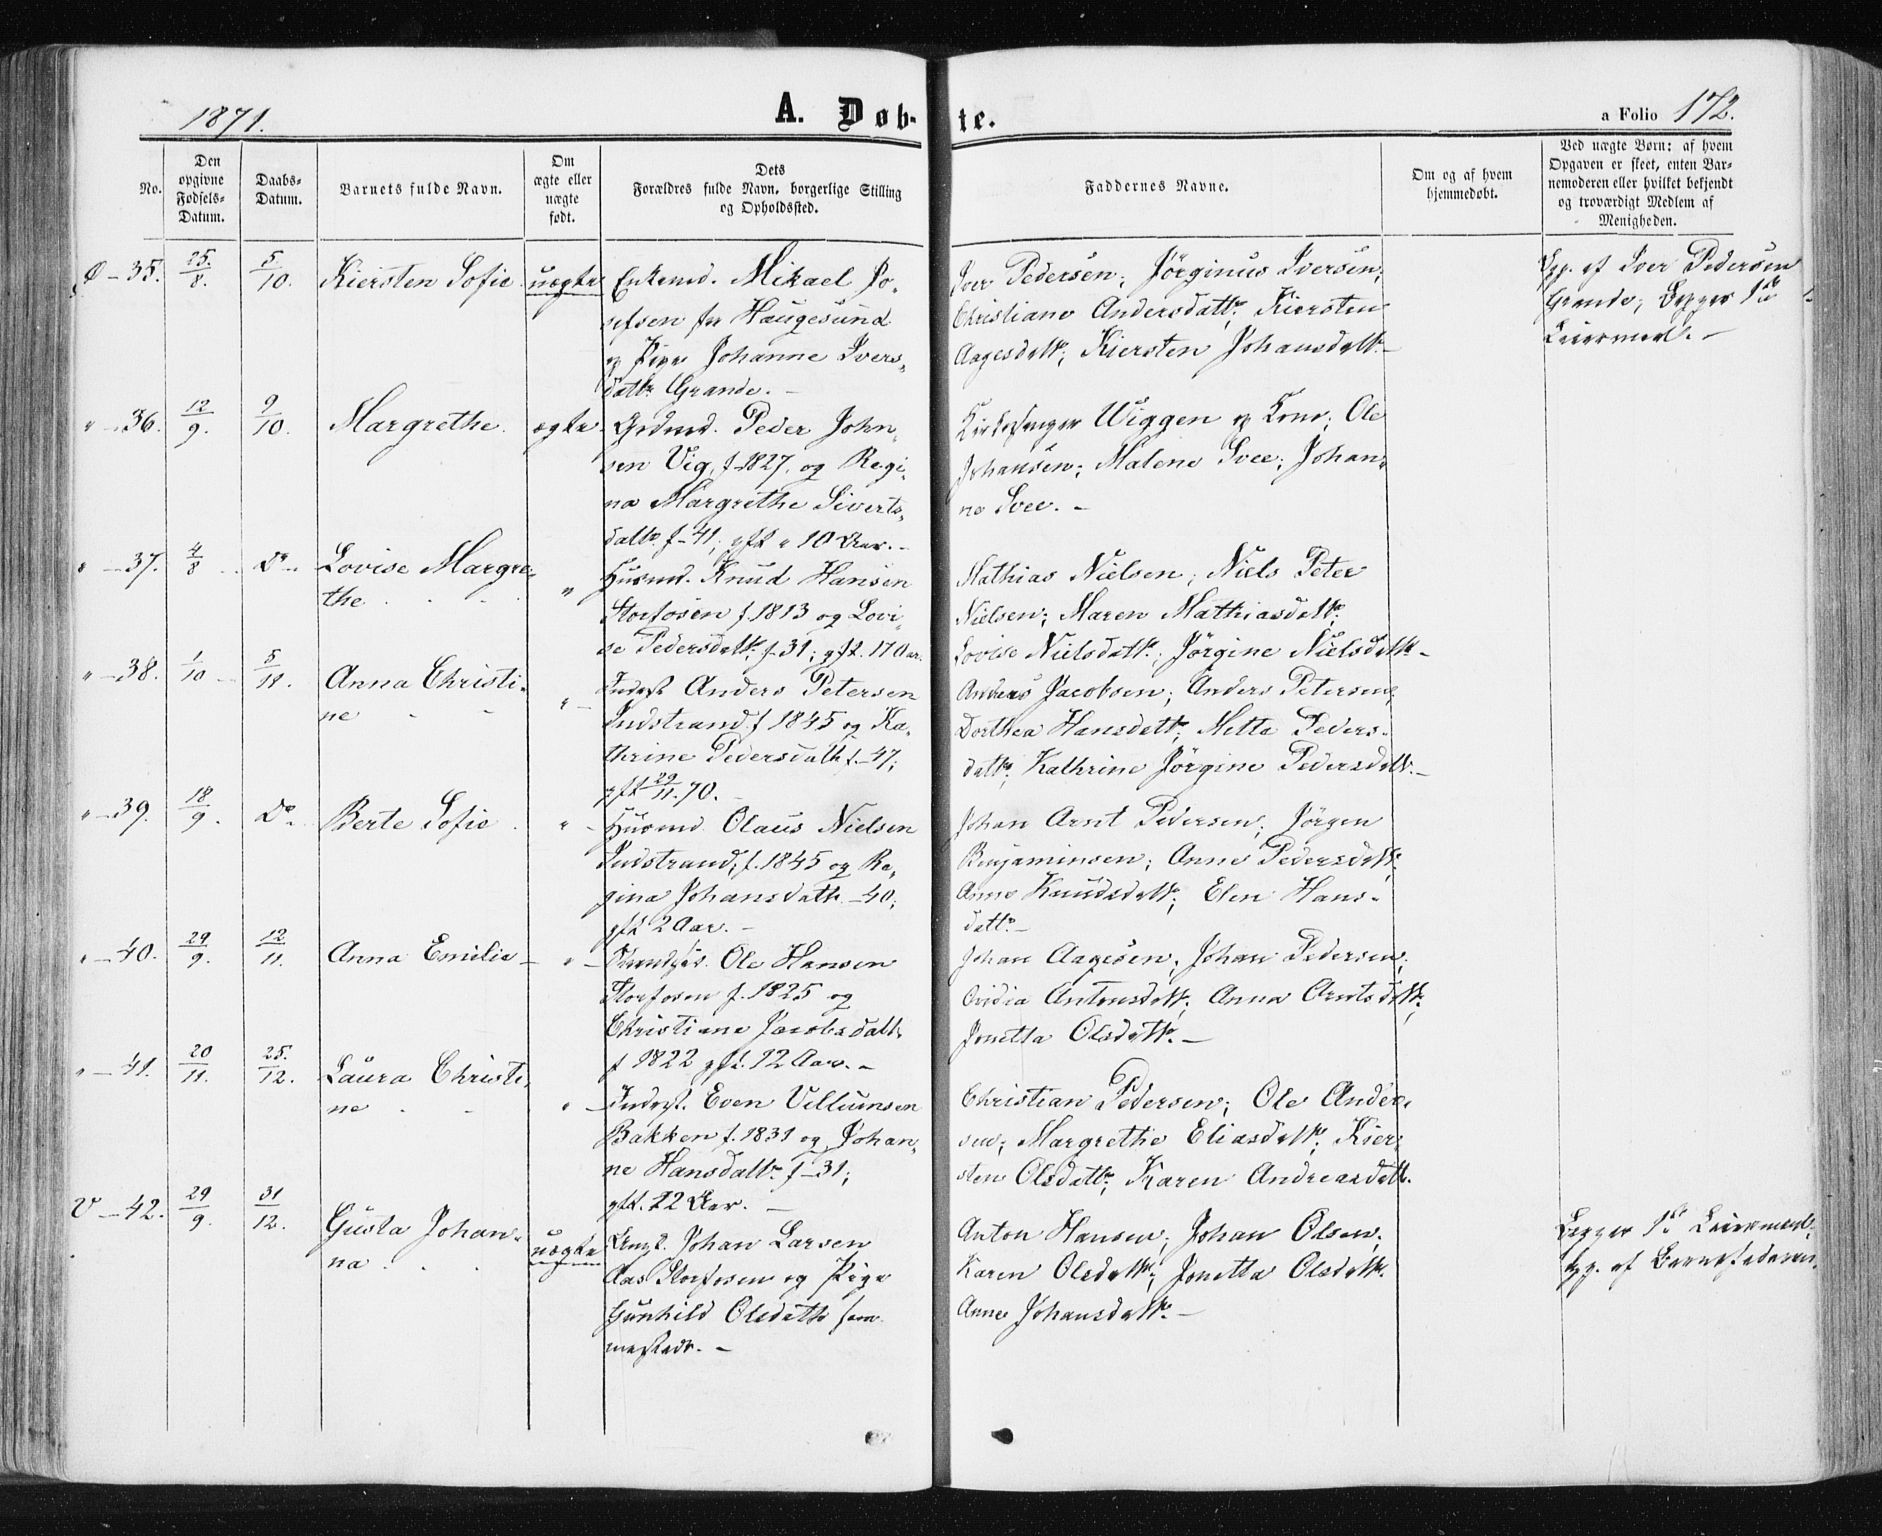 1871.
A. Døb-
te.
a Folio 172.
No.
Den
opgivne
Fødsels-
Datum.
Daabs-
Datum.
Barnets fulde Navn.
Om
ægte eller
uægte
født.
Dets
Forældres fulde Navn, borgerlige Stilling
og Opholdssted.
Faddernes Navne.
Om og af hvem
hjemmedøbt.
Ved uægte Børn: af hvem
Opgaven er skeet, enten Bar-
nemoderen eller hvilket bekjendt
og troværdigt Medlem af
Menigheden.
Ø - 35. 25/8. 5/10. Kiersten Sofie. uægte
Enkemd. Mikael Jo-
sefsen fra Haugesund
og Pige Johanne Ivers-
datter Grande. -
Iver Pedersen; Jørginus Iversen;
Christiane Andersdattr; Kiersten
Aagesdattr; Kiersten Johansdattr -
Opg. af Iver Pedersen
Grande; Begges 1ste
Leiermaal. -
" - 36. 12/9. 9/10. Margrethe. ægte.
Grdmd. Peder John-
sen Vig, f. 1827, og Regi-
na Margrethe Siverts-
dattr f - 41, gft i 10 Aar. -
Kirkesanger Wiggen og Kone; Ole
Johansen; Malene Svee; Johan-
ne Svee. -
" - 37. 4/8 Do. Lovise Margre-
the "
Husmd. Knud Hansen
Storfosen f. 1813 og Lovi-
se Pedersdattr; f - 31; gft. 17 Aar.
Mathias Nielsen; Niels Peter
Nielsen; Maren Mathiasdattr;
Lovise Nielsdattr; Jørgine Nielsdattr -
" - 38. 1/10 5/11. Anna Christi-
ne "
Inderst Anders Petersen
Indstrand f 1845 og Ka-
thrine Pedersdattr f - 47;
gft 29/11. 70. -
Anders Jacobsen; Anders Petersen;
Dorthea Hansdattr; Mette Peders-
dattr; Kathrine Jørgine Pedersdattr. -
" - 39. 18/9. Do. Berte Sofie "
Husmd Olaus Nielsen
Indstrand; f. 1845 og Re-
gina Johansdattr - 40;
gft 2 Aar. -
Johan Arnt Pedersen; Jørgen
Benjaminsen; Anne Pedersdattr
Anne Knudsdattr; Elen Hans-
dattr -
" - 40. 29/9. 12/11. Anna Emilie - "
Ole Hansen
Storfosen f. 1825 og
Christiane Jacobsdattr
f 1822 gft. 12 Aar. -
Johan Aagesen; Johan Pedersen;
Ovidia Antonsdattr; Anna Arntsdattr;
Jonetta Olsdattr. -
" - 41. 20/11. 25/12. Laura Christi-
ne "
Inderst. Even Villumsen
Bakken f. 1831 og Johan-
ne Hansdattr f - 31;
gft. 12 Aar. -
Christian Pedersen; Ole Ander-
sen; Margrethe Eliasdattr; Kier-
sten Olsdattr; Karen Andreasdattr.
V - 42. 29/9. 31/12. Gusta Johan-
na uægte
Ungk. Johan Larsen
Aas Storfosen og Pige
Gunhild Olsdattr sam-
mesteds. -
Anton Hansen; Johan Olsen;
Karen Olsdattr; Jonetta Olsdattr.
Anne Johansdattr. -
Begges 1ste Leiermaal;
Opg. af Barnefaderen.